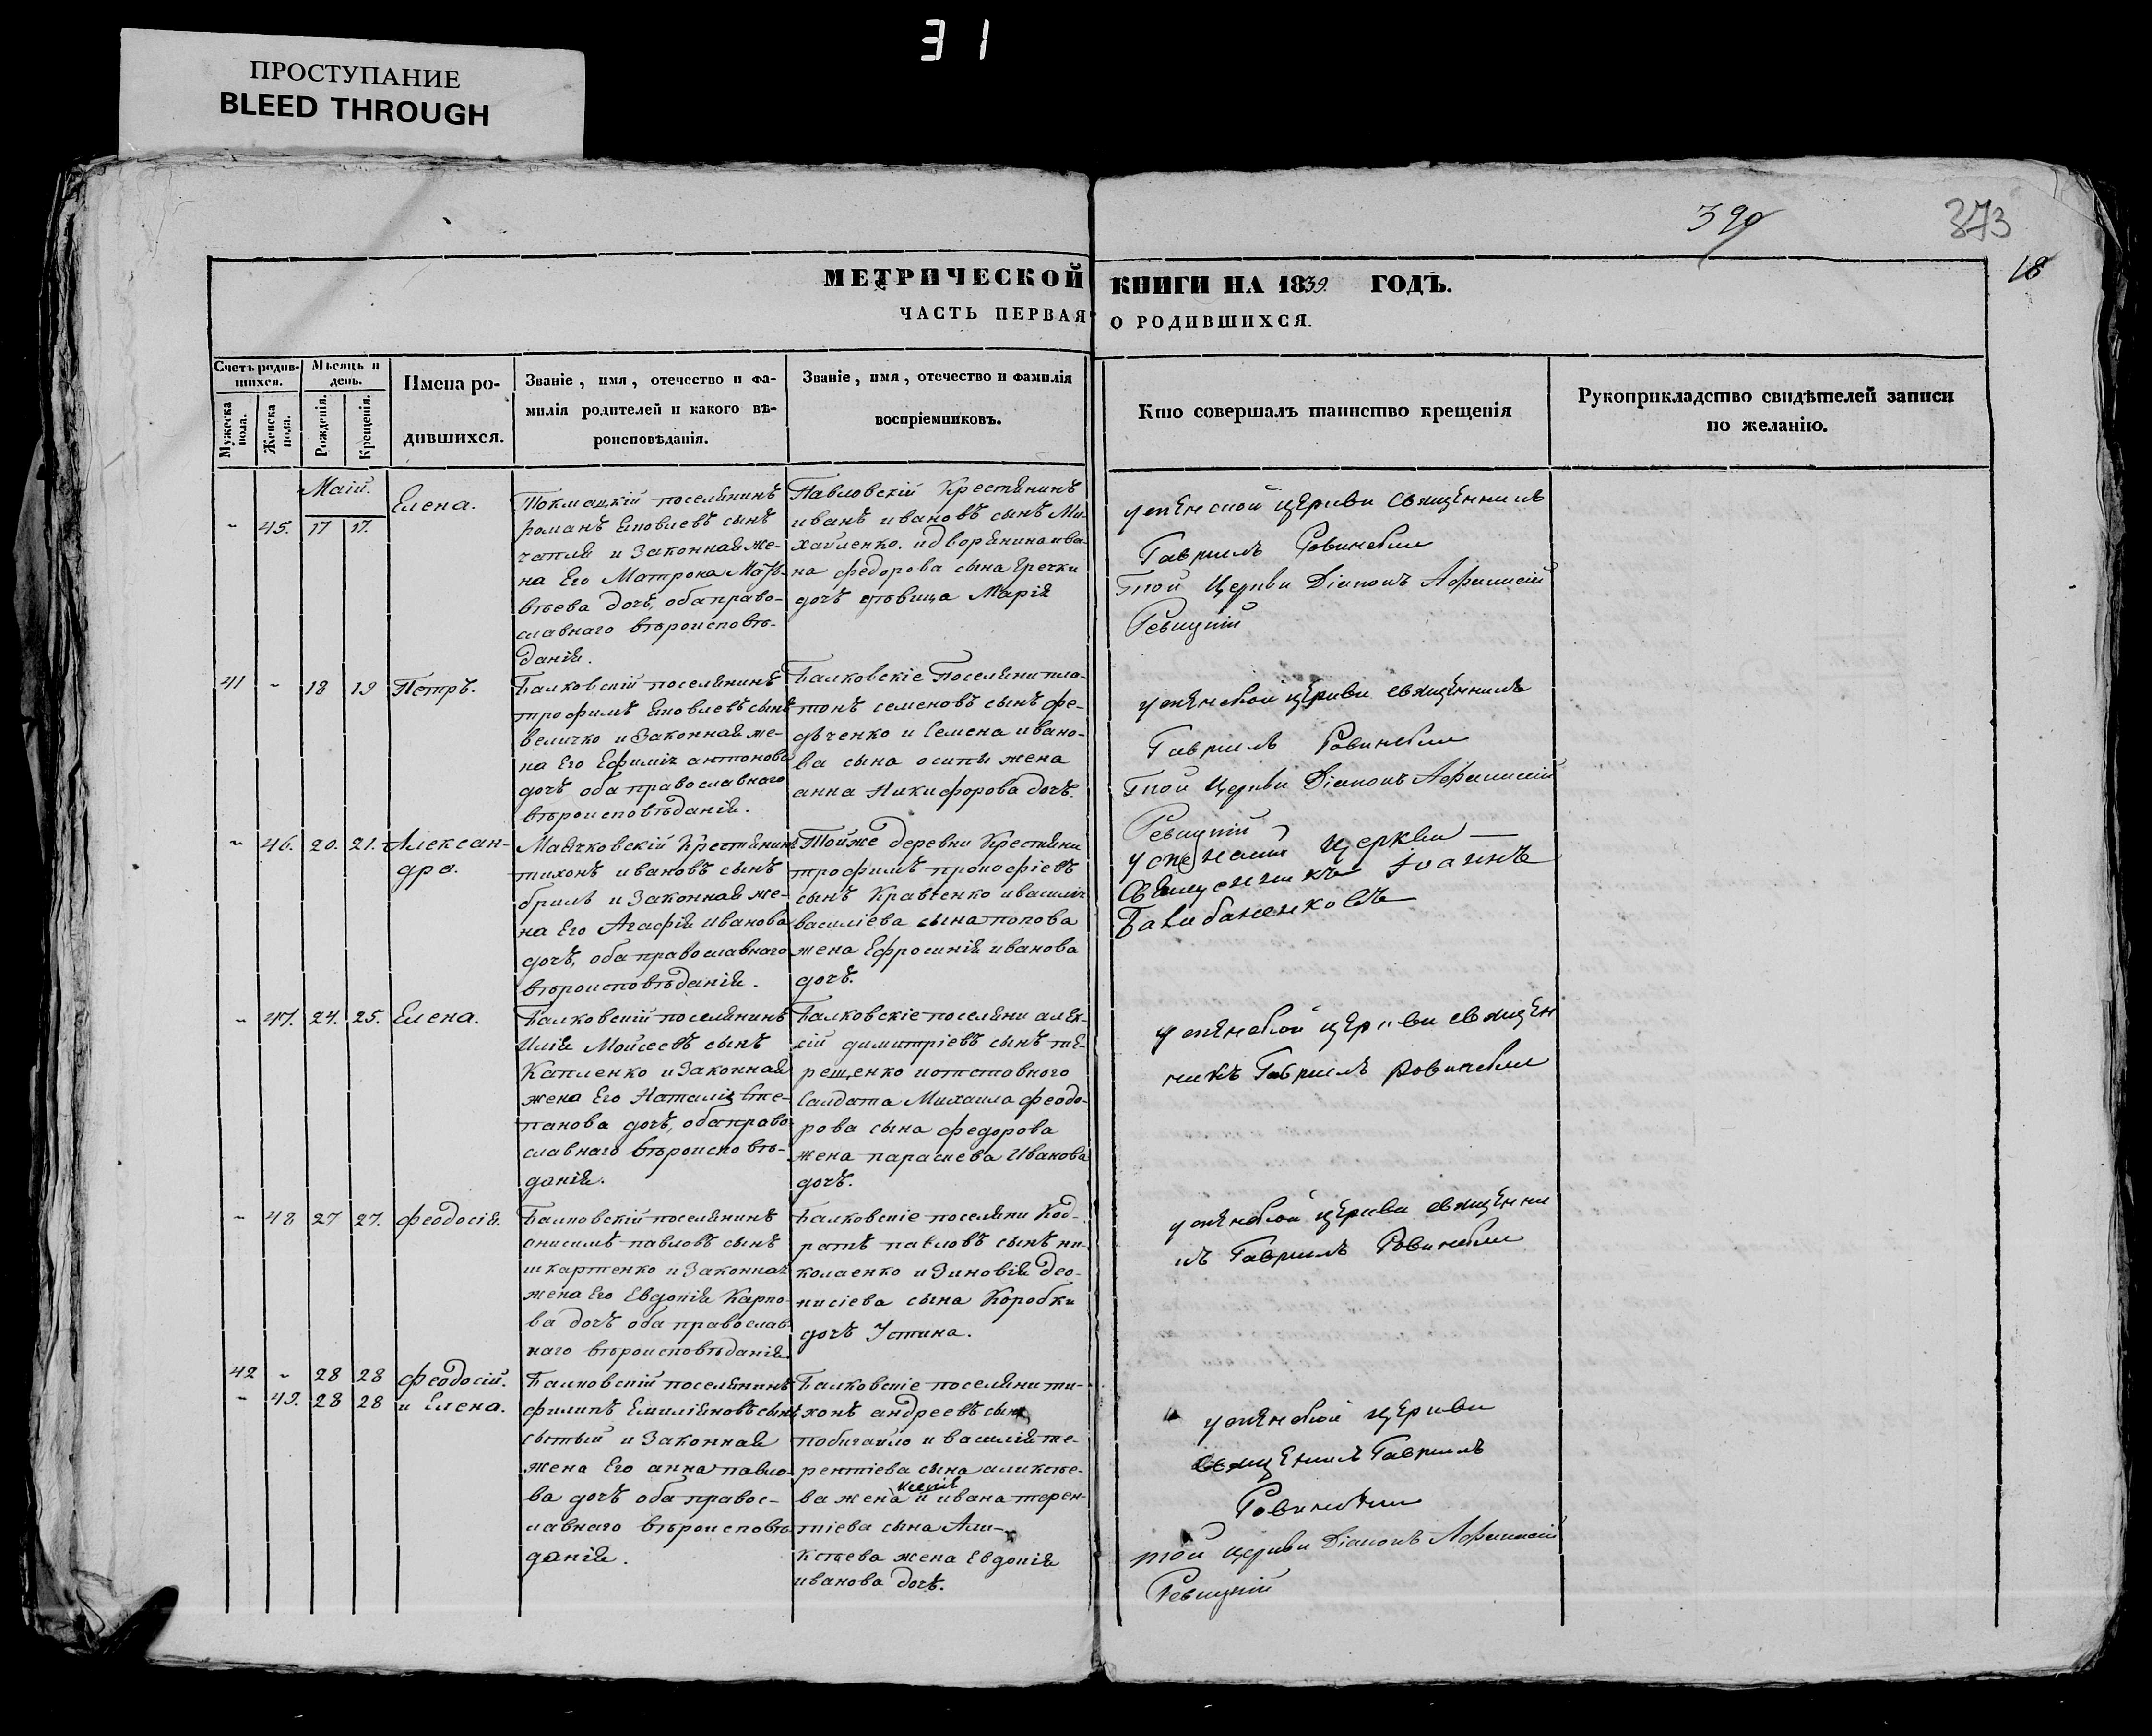 31
ПРОСТУПАНИЕ
BLEED THROUGH
399
373
18
МЕТРИЧЕСКОЙ КНИГИ НА 1839. ГОДЪ.
ЧАСТЬ ПЕРВАЯ О РОДИВШИХСЯ.
Счетъ родив-
шихся.
Мужеска пола.
Женска пола.
Мѣсяцъ и
день.
Рожденія.
Крещенія.
Имена ро-
дившихся.
Званіе, имя, отечество и фа-
милія родителей и какого вѣ-
роисповѣданія.
Званіе, имя, отечество и фамилія
воспріемниковъ.
Кто совершалъ таинство крещенія
Рукоприкладство свидѣтелей записи
по желанію.
Маій.
- 45. 17 17. Елена.
Токмацкій поселянинъ
романъ яковлевъ сынъ
и законная же-
на Его Матрона Мат-
вѣева дочь, оба право-
славнаго вѣроисповѣ-
данія.
Павловскій Крестянинъ
иванъ ивановъ сынъ Ми-
хайленко. и дворянина ива-
на федорова сына Гречки
дочь дѣвица Марія
успенской церкви священникъ
Гавріилъ Ровинскій
той Церкви Діаконъ Афанасій
Ревицкій
41 - 18 19 Петръ.
Балковскій поселянинъ
трофимъ яковлевъ сынъ
величко и Законная же-
на Его Ефимія антонова
дочь оба православнаго
вѣроисповѣданія.
Балковскіе Поселяни пла-
тонъ семеновъ сынъ фе-
дѣченко и Семена ивано-
ва сына осипы жена
анна Никифорова дочь.
успенской церкви священникъ
Гавріилъ Ровинскій
той Церкви Діаконъ Афанасій
Ревицкій
- 46. 20. 21. Алексан-
дра.
Маячковскій Крестянинъ
тихонъ ивановъ сынъ
и Законная же-
на Его Агафія Иванова
дочь, оба православнаго
вѣроисповѣданія.
Тойже деревни Крестяни
трофимъ прокофіевъ
сынъ Кравченко и василія
василіева сына попова
жена Ефросинія иванова
дочь.
успенской Церкви
Священникъ Іоаннъ
- 47. 24. 25. Елена.
Балковскій поселянинъ
Илія Мойсеевъ сынъ
Капленко и Законная
жена Его Наталія Сте-
панова дочь, оба право
славнаго вѣроисповѣ-
данія.
Балковскіе поселяни алек-
сій димитріевъ сынъ те-
рещенко и отставного
Салдата Михаила феодо-
рова сына федорова
жена параскева Иванова
дочь.
успенской церкви священ
никъ Гавріилъ Ровинскій
- 48 27 27. Феодосія.
Балковскій поселянинъ
анисимъ павловъ сынъ
шкартенко и Законная
жена Его Евдокія Карпо-
ва дочь оба православ
наго вѣроисповѣданія
Балковскіе поселяни Код-
ратъ павловъ сынъ ни-
колаенко и Зиновія део-
нисіева сына Коробки
дочь Устина.
успенской церкви священни
къ Гавріилъ Ровинскій
42 - 28 28 феодосій.
- 49. 28 28 и Елена.
Балковскій поселянинъ
филипъ Емиліановъ сынъ
сытый и Законная
жена Его анна павло-
ва дочь оба правос-
лавнаго вѣроисповѣ
данія.
Балковскіе поселяни ти-
хонъ андреевъ сынъ
побигайло и василія те-
рентіева сына аликсѣе-
ва жена ксенія и ивана терен-
тіева сына Али-
ксѣева жена Евдокія
иванова дочь.
успенской церкви
священникъ Гавріилъ
Ровинскій
той церкви Діаконъ Афанасій
Ревицкій